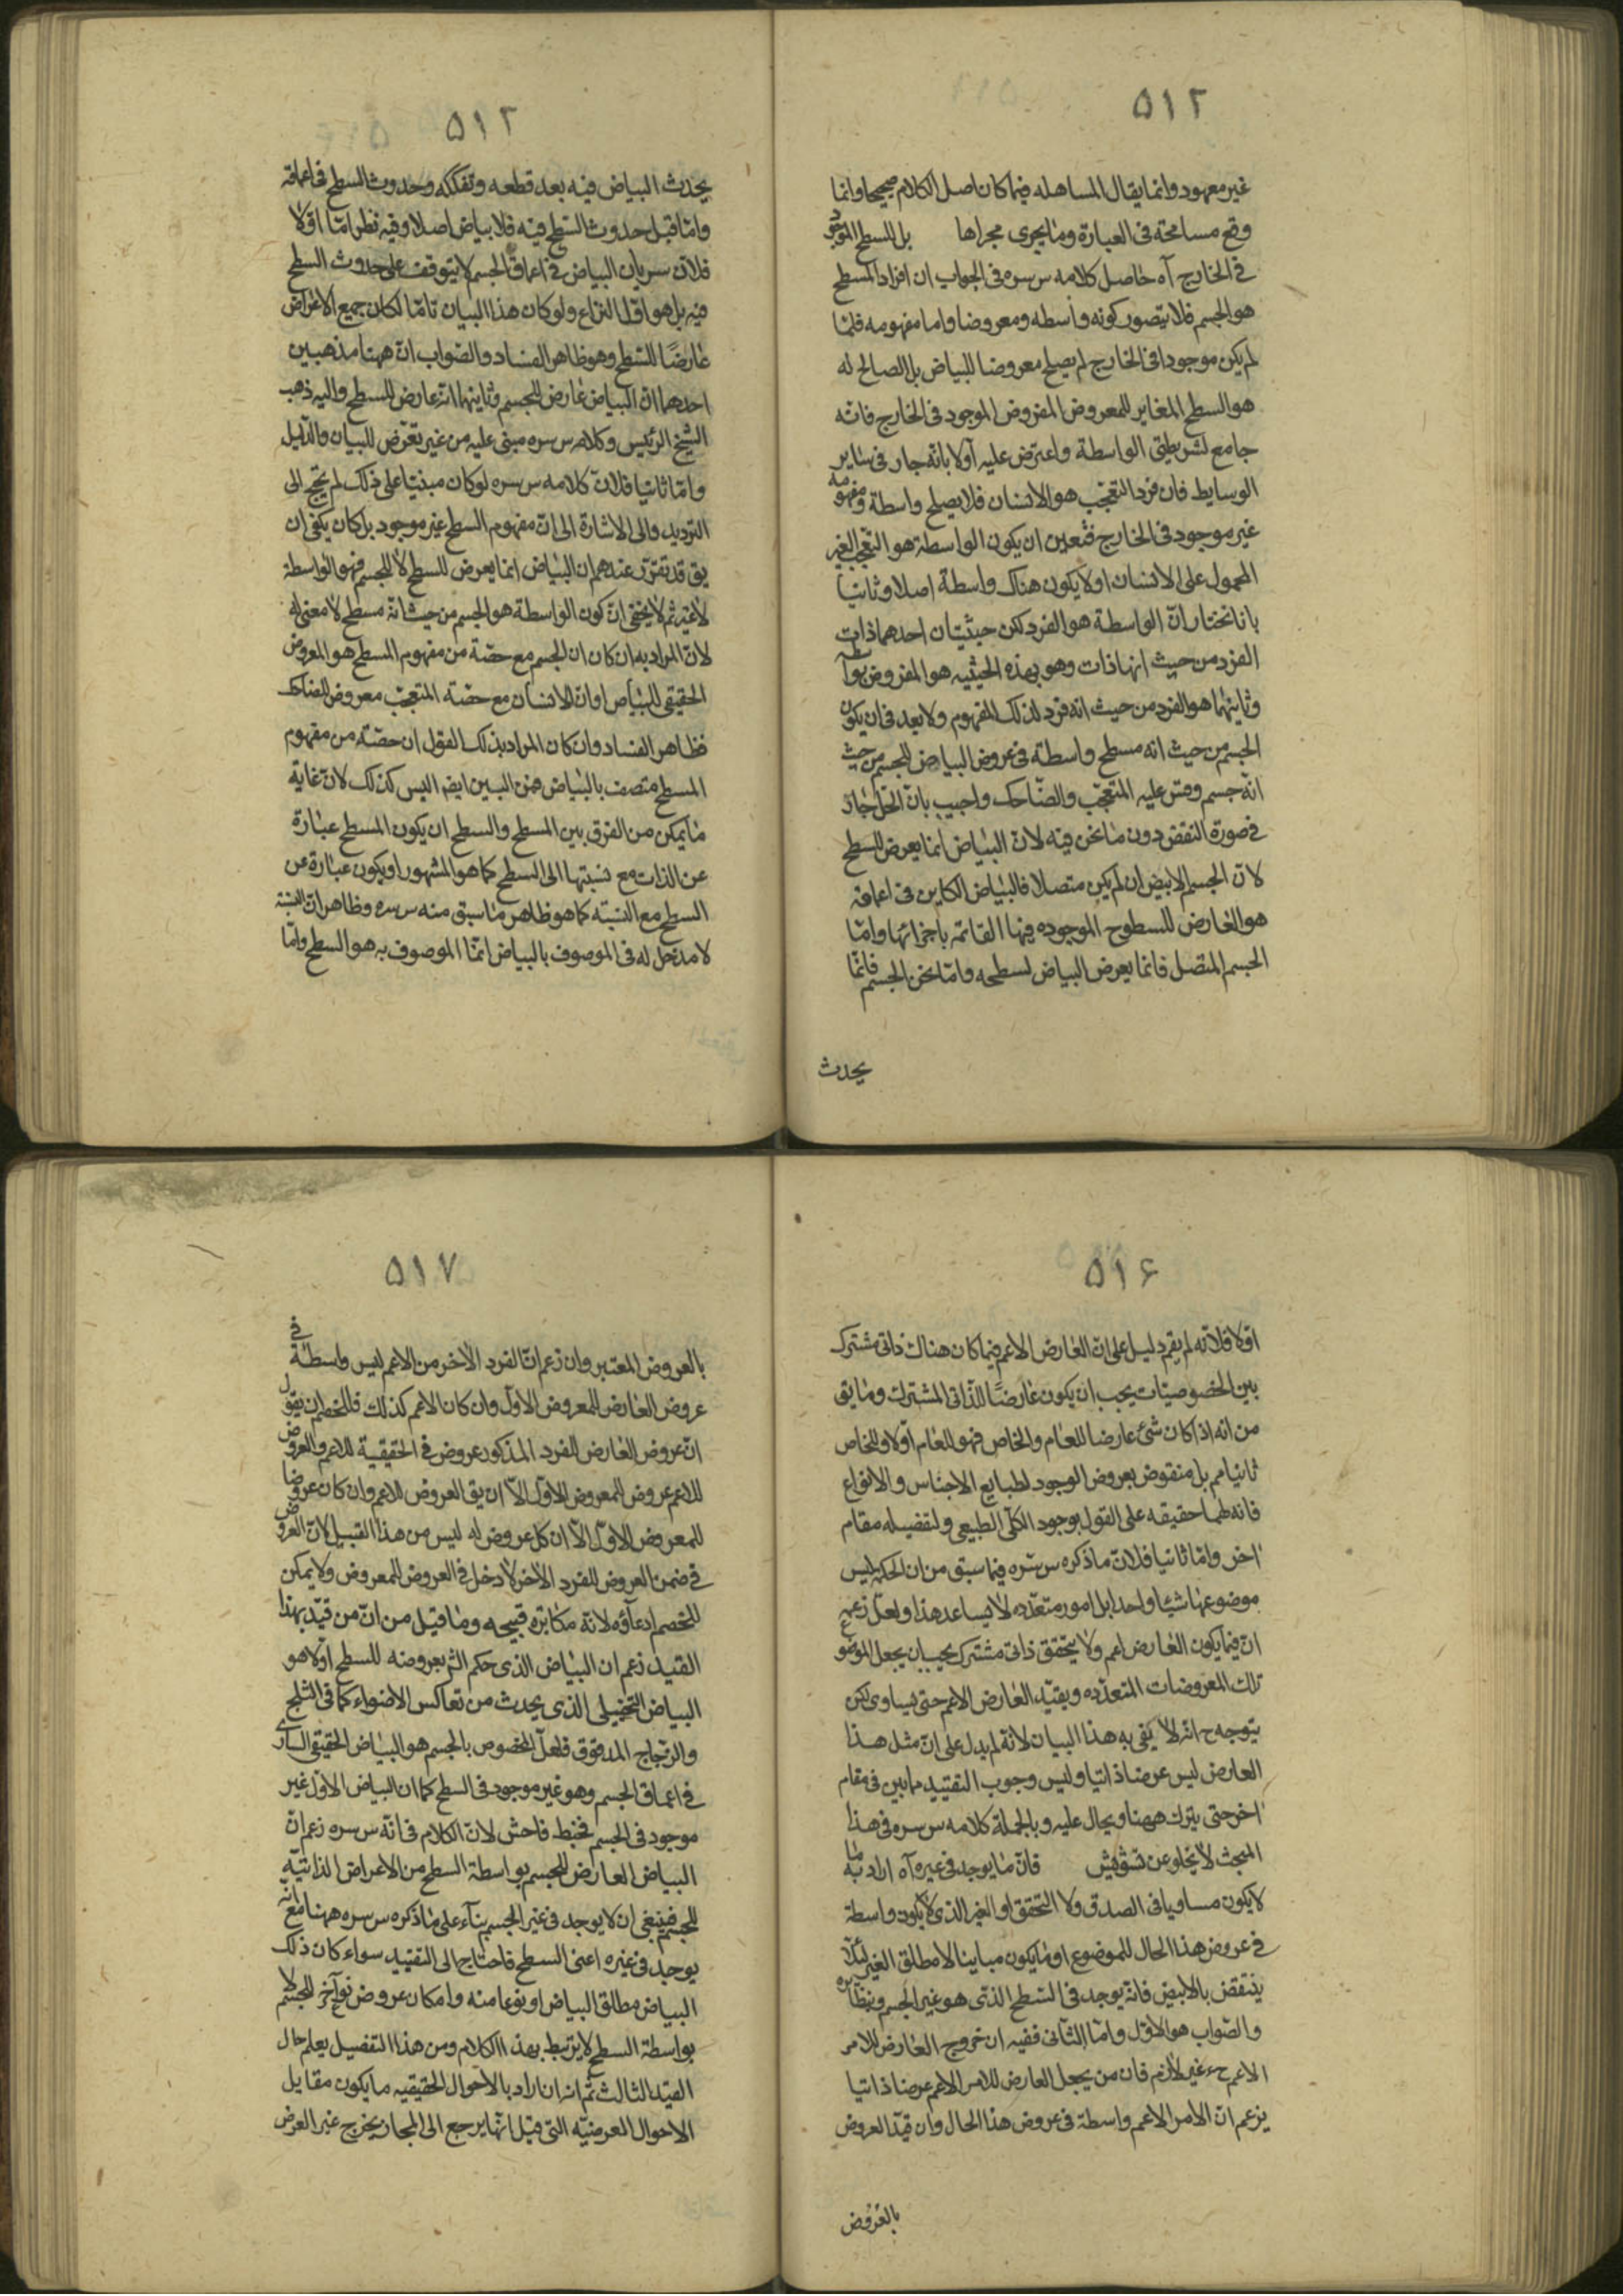 ۵۱۲
غير معهود وانما يقال المساهله فيما كان اصل الكلام صحيحا وانما
وقع مسامحة فى العبارة وما يجرى مجراها بل للسطح الموجود
فى الخارج آه حاصل كلامه س سره فى الجواب ان افراد المسطح
هو الجسم فلا يتصور كونه واسطه ومعروضا واما مفهومه فلما
لم يكن موجودا فى الخارج لم يصلح معروضا للبياض بل الصالح له
هو السطح المغاير للمعروض المفروض الموجود فى الخارج فانه
جامع لشريطتى الواسطة واعترض عليه اولا بانه جار فى ساير
الوسايط فان فرد التعجب هو الانسان فلا يصلح واسطة ومفهومه
غير موجود فى الخارج فتعين ان يكون الواسطة هو التعجب الغير
المحمول على الانسان او لا يكون هناك واسطة اصلا وثانيا
بانا نختار ان الواسطة هو الفرد لكن حيثيتان احدهما ذات
الفرد من حيث انها ذات وهو بهذه الحيثيه هو المفروض بواسطه
وثانيهما هو الفرد من حيث انه فرد لذلك المفهوم ولا بعد فى ان يكون
الجسم من حيث انه مسطح واسطة فى عروض البياض للجسم من حيث
انه جسم وقس عليه المتعجب والضاحك واجيب بان الحل جار
فى صورة النقض دون ما نحن فيه لان البياض انما يعرض للسطح
لان الجسم الابيض ان لم يكن متصلا فالبياض الكاين فى اعماقه
هو العارض للسطوح الموجوده فيها القائمه باجزائها واما
الجسم المتصل فانما يعرض البياض لسطحه واما ثخن الجسم فانما
يحدث
۵۱۲
يحدث البياض فيه بعد قطعه وتفككه وحدوث السطح فى اعماقه
واما قبل حدوث السطح فيه فلا بياض اصلا وفيه نظر اما اولا
فلان سريان البياض فى اعماق الجسم لا يتوقف على حدوث السطح
فيه بل هو اول النزاع ولو كان هذا البيان تاما لكان جميع الاعراض
عارضا للسطح وهو ظاهر الفساد والصواب ان ههنا مذهبين
احدهما ان البياض عارض للجسم وثانيهما انه عارض للسطح واليه ذهب
الشيخ الرئيس وكلامه س سره مبنى عليه من غير تعرض للبيان والدليل
واما ثانيا فلان كلامه س سره لو كان مبنيا على ذلك لم يحتج الى
الترديد والى الاشارة الى ان مفهوم السطح غير موجود بل كان يكفى ان
يق قد تقرر عندهم ان البياض انما يعرض للسطح لا للجسم فهو الواسطة
لا غير ثم لا يخفى ان كون الواسطة هو الجسم من حيث انه مسطح لا معنى له
لان المراد به ان كان ان الجسم مع حصة من مفهوم المسطح هو المعروض
الحقيقى للبياض او ان الانسان مع حصة المتعجب معروض للضاحك
فظاهر الفساد وان كان المراد بذلك القول ان حصة من مفهوم
المسطح متصف بالبياض فمن البين ايضا ليس كذلك لان غاية
ما يمكن من الفرق بين المسطح والسطح ان يكون المسطح عبارة
عن الذات مع نسبتها الى السطح كما هو المشهور او يكون عبارة عن
السطح مع النسبة كما هو ظاهر ما سبق منه س سره وظاهر ان النسبة
لا مدخل له فى الموصوف بالبياض انما الموصوف به هو السطح واما
۵۱۶
اولا فلانه لم يقم دليل على ان العارض الاعم فيما كان هناك ذاتى مشترك
بين الخصوصيات يجب ان يكون عارضا للذاتى المشترك وما يق
من انه اذا كان شئ عارضا للعام والخاص فهو للعام اولا وللخاص
ثانيا مم بل منقوض بعروض الوجود لطبايع الاجناس والانواع
فانه لهما حقيقه على القول بوجود الكلى الطبيعى ولتفصيله مقام
اخر واما ثانيا فلان ما ذكره س سره فيما سبق من ان الحكمه ليس
موضوعها شيئا واحدا بل امور متعدده لا يساعد هذا ولعل زعمه
ان فيما يكون العارض اعم ولا يتحقق ذاتى مشترك يجب ان يجعل الموضوع
تلك المعروضات المتعدده ويقيد العارض الاعم حتى يساوى لكن
يتوجه ح انه لا يفى به هذا البيان لانه لم يدل على ان مثل هذا
العارض ليس عرضا ذاتيا وليس وجوب التقييد مما بين فى مقام
اخر حتى يترك ههنا ويحال عليه وبالجملة كلامه س سره فى هذا
المبحث لا يخلو عن تشويش فان ما يوجد فى غيره آه اراد به ما
لا يكون مساويا فى الصدق ولا التحقق او الغير الذى لا يكون واسطة
فى عروض هذا الحال للموضوع او ما يكون مباينا لا مطلق الغير لئلا
ينتقض بالابيض فانه يوجد فى السطح الذى هو غير الجسم وبنظائره
والصواب هو الاول واما الثانى ففيه ان خروج العارض للامر
الاعم ح غير لازم فان من يجعل العارض للامر الاعم عرضا ذاتيا
يزعم ان الامر الاعم واسطة فى عروض هذا الحال وان قيد العروض
بالعروض
۵۱۷
بالعروض المعتبر وان زعم ان الفرد الاخر من الاعم ليس واسطة فى
عروض العارض للمعروض الاول وان كان الاعم كذلك فللخصم ان يقول
ان عروض العارض للفرد المذكور عروض فى الحقيقية للاعم والعروض
للاعم عروض للمعروض الاول الا ان يق العروض للاعم وان كان عروضا
للمعروض الاول الا ان كل عروض له ليس من هذا القبيل لان العروض
فى ضمن العروض للفرد الاخر لا دخل فى العروض للمعروض ولا يمكن
للخصم ادعاؤه لانه مكابره قبيحه وما قيل من ان من قيد بهذا
القيد زعم ان البياض الذى حكم الش بعروضه للسطح اولا هو
البياض التخييلى الذى يحدث من تعاكس الاضواء كما فى الثلج
والزجاج المدقوق فلعل المخصوص بالجسم هو البياض الحقيقى السارى
فى اعماق الجسم وهو غير موجود فى السطح كما ان البياض الاول غير
موجود فى الجسم فخبط فاحش لان الكلام فى انه س سره زعم ان
البياض العارض للجسم بواسطة السطح من الاعراض الذاتية
للجسم فينبغى ان لا يوجد فى غير الجسم بناء على ما ذكره س سره ههنا مع انه
يوجد فى غيره اعنى السطح فاحتاج الى التقييد سواء كان ذلك
البياض مطلق البياض او نوعا منه وامكان عروض نوع آخر للجسم لا
بواسطة السطح لا يرتبط بهذا الكلام ومن هذا التفصيل يعلم حال
القيد الثالث ثم انه ان اراد بالاحوال الحقيقيه ما يكون مقابل
الاحوال العرضيه التى قيل انها يرجع الى المجاز يخرج غير العرض